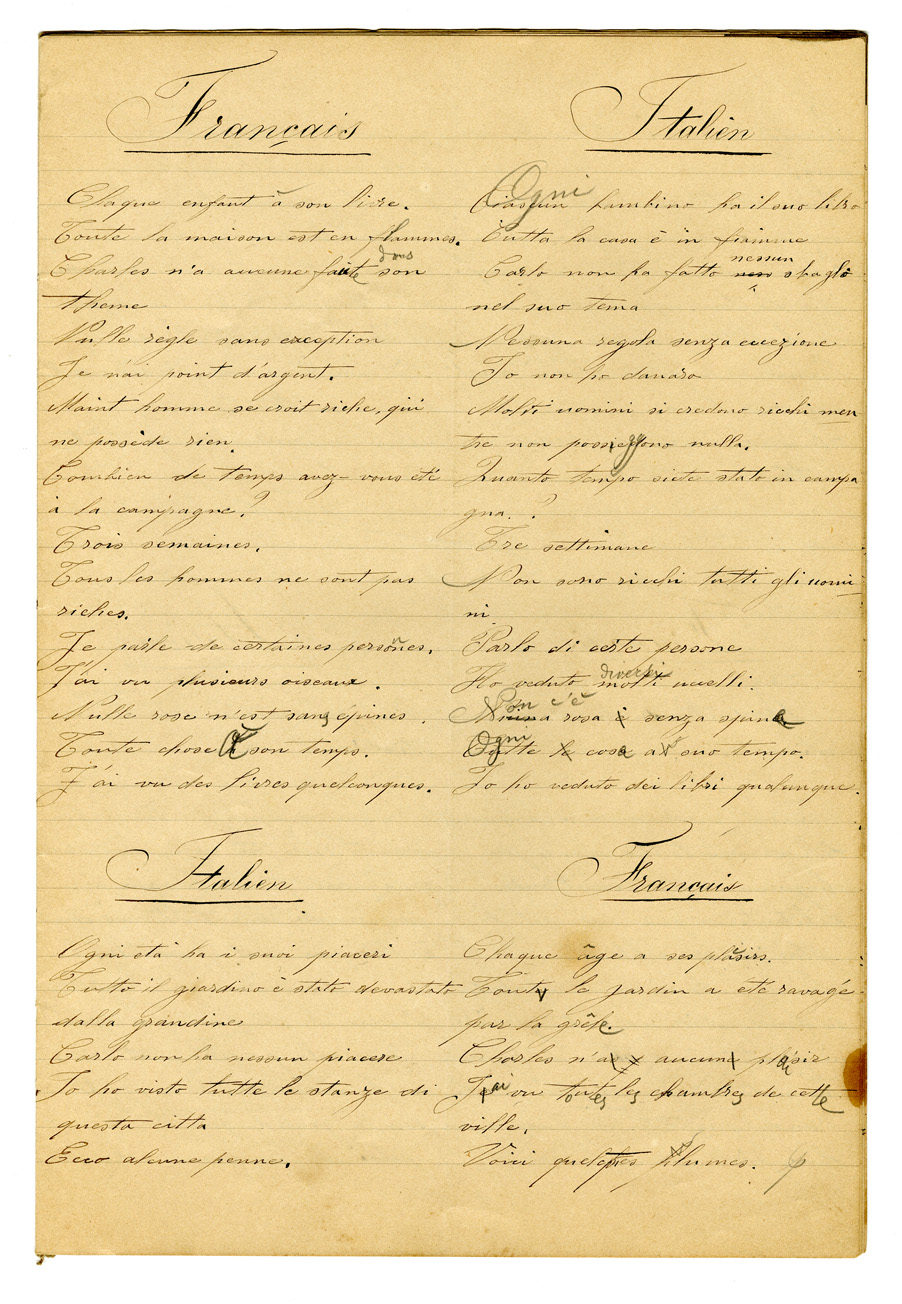 Français
Chaque enfant à son livre.
Toute la maison est en flammes.
dans
Charles n'a aucune faute son
thème
Nulle règle sans exception
Je n'ai point d'argent.
Maint homme se croit riche, qui
ne possède rien
Combien de temps avez-vous été
à la campagne?
Trois semaines.
Tous les hommes ne sont pas
riches.
Je parle de certaines personnes.
J'ai vu plusieurs oiseaux.
Nulle rose n'est sans épines.
Toute chose a son temps.
J'ai vu des livres quelconques.
Italien
Ogni
Ciascun bambino ha il suo libro
Tutta la casa è in fiamme
nessun
Carlo non ha fatto non sbaglio
nel suo tema
Nessuna regola senza eccezione
Io non ho danaro
Molti uomini si credono ricchi men
tre non posseggono nulla.
Quanto tempo siete stato in campa
gna.?
Tre settimane
Non sono ricchi tutti gli uomi
ni
Parlo di certe persone
diversi
Ho veduto molti uccelli.
Non c'è
rosa è senza spina
Ogni
Tutte le cosa a suo tempo.
Io ho veduto dei libri qualunque.
Italien
Ogni età ha i suoi piaceri
Tutto il giardino è stato devastato
dalla grandine
Carlo non ha nessun piacere
Io ho visto tutte le stanze di
questa citta
Ecco alcune penne.
Français
Chaque âge a ses plaisirs.
Toute le jardin a eté ravagé
par la grêle.
Charles n'a aucune plaisir
J'ai vu toutes les chambres de cette
ville.
Voici quelques plumes.